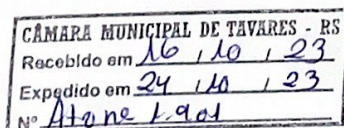 CÂMARA MUNICIPAL DE TAVARES - RS
Recebido em 16 / 10 / 23
Expedido em 24 / 10 / 23
Nº